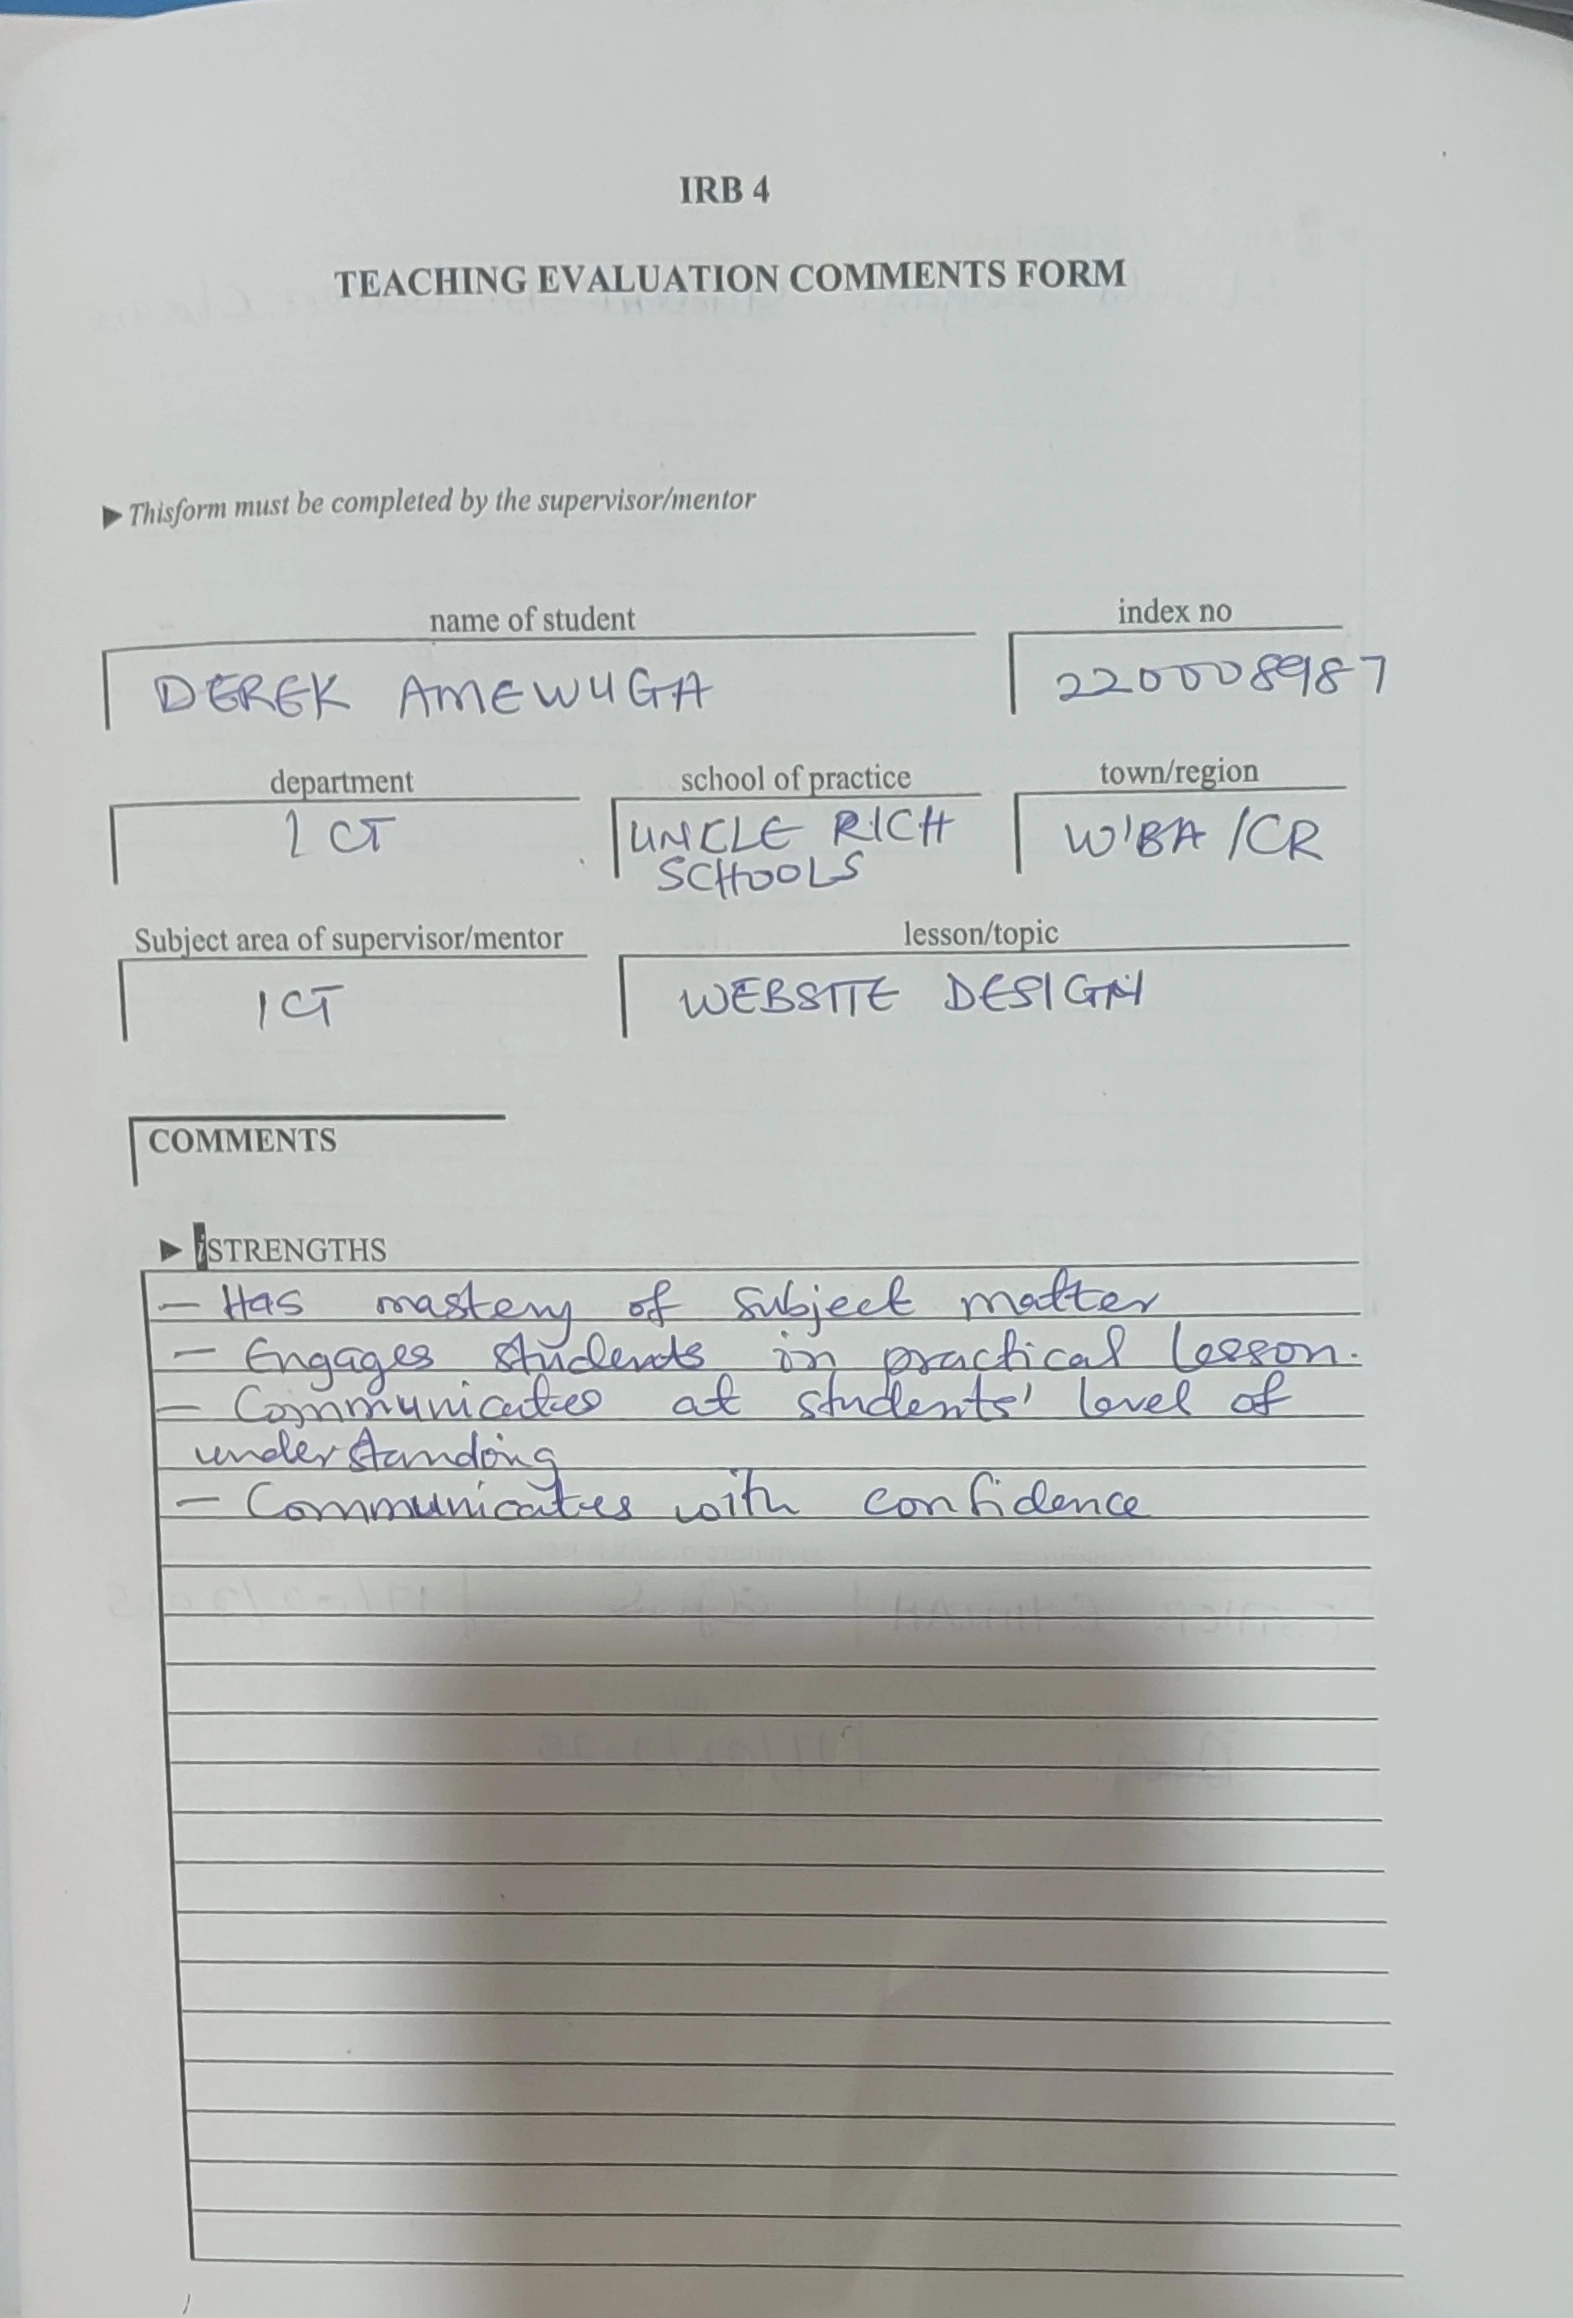 IRB 4
TEACHING EVALUATION COMMENTS FORM
▶ Thisform must be completed by the supervisor/mentor
name of student index no
DEREK AMEWUGA 220008987
department school of practice town/region
ICT UNCLE RICH W'BA /CR
SCHOOLS
Subject area of supervisor/mentor lesson/topic
ICT WEBSITE DESIGN
COMMENTS
▶ iSTRENGTHS
- Has mastery of subject matter
- Engages students in practical lesson.
- Communicates at students' level of
understanding
- Communicates with confidence